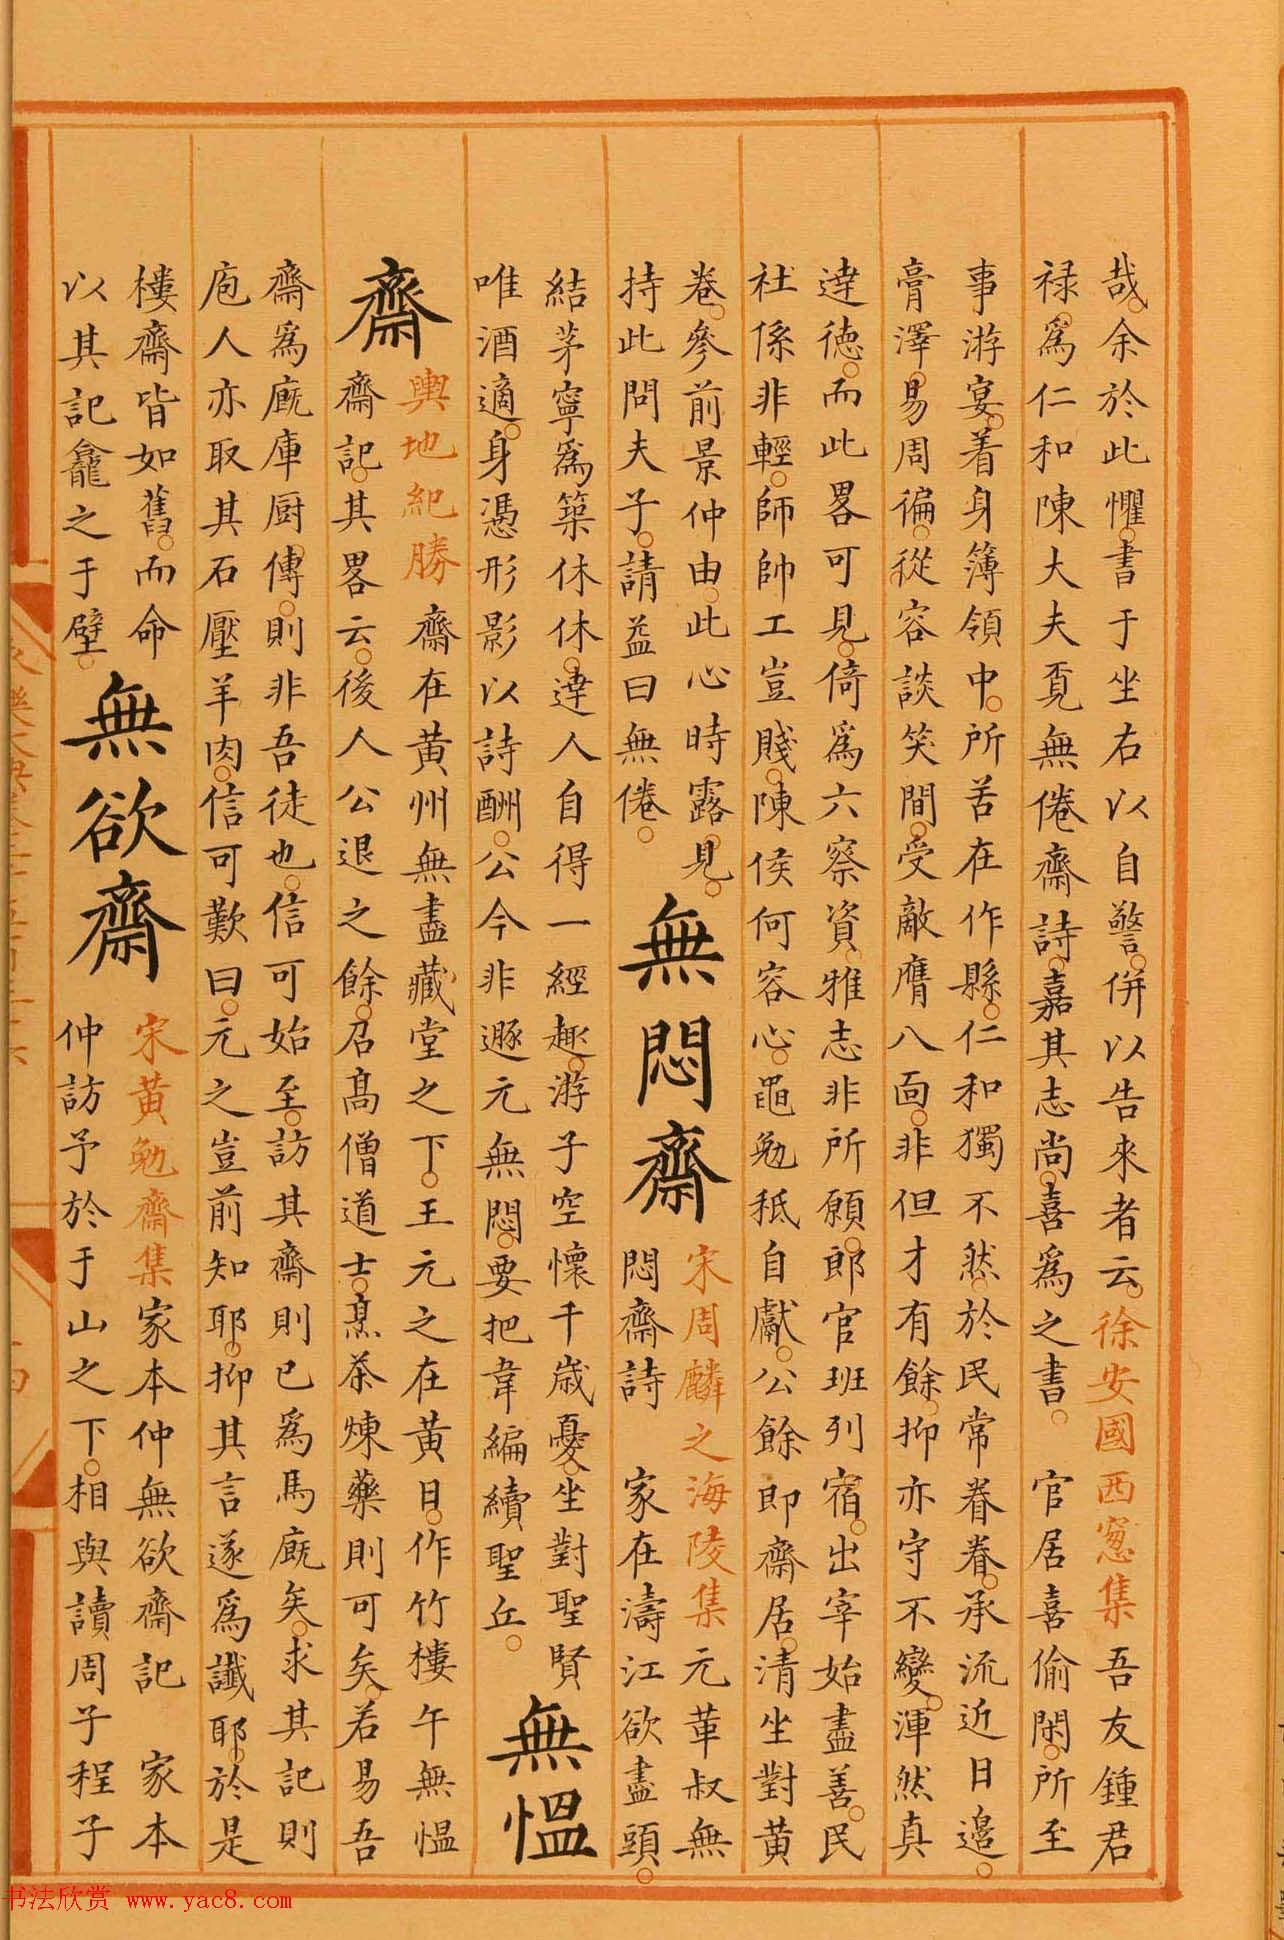 哉余於此懼書于坐右以自警併以告來者云徐安國西窻集吾友鍾君
禄爲仁和陳大夫覔無倦齋詩嘉其志尚喜爲之書 官居喜偷閑所至
事游宴着身簿領中所苦在作縣仁和獨不然於民常眷眷承流近日邉
膏澤易周徧從容談笑間受敵膺八面非但才有餘抑亦守不變渾然真
逹德而此畧可見倚爲六察資雅志非所願郎官班列宿出宰始盡善民
社係非輕師帥工豈賤陳侯何容心黽勉秪自獻公餘即齋居清坐對黄
卷參前景仲由此心時露見
持此問夫子請益曰無倦
無悶齋
宋周麟之海陵集元革叔無
悶齋詩 家在濤江欲盡頭
結茅寧爲築休休逹人自得一經趣游子空懷千歳憂坐對聖賢
唯酒適身憑形影以詩酬公今非遯元無悶要把韋編續聖丘
無愠
齋
輿地紀勝齋在黄州無盡藏堂之下王元之在黄日作竹樓午無愠
齋記其畧云後人公退之餘召髙僧道士烹茶煉藥則可矣若易吾
齋爲廐庫厨傳則非吾徒也信可始至訪其齋則已爲馬廐矣求其記則
庖人亦取其石壓羊肉信可歎曰元之豈前知耶抑其言遂爲讖耶於是
樓齋皆如舊而命
以其記龕之于壁
無欲齋
宋黄勉齋集家本仲無欲齋記 家本
仲訪予於于山之下相與讀周子程子
书法欣赏 www.yac8.com